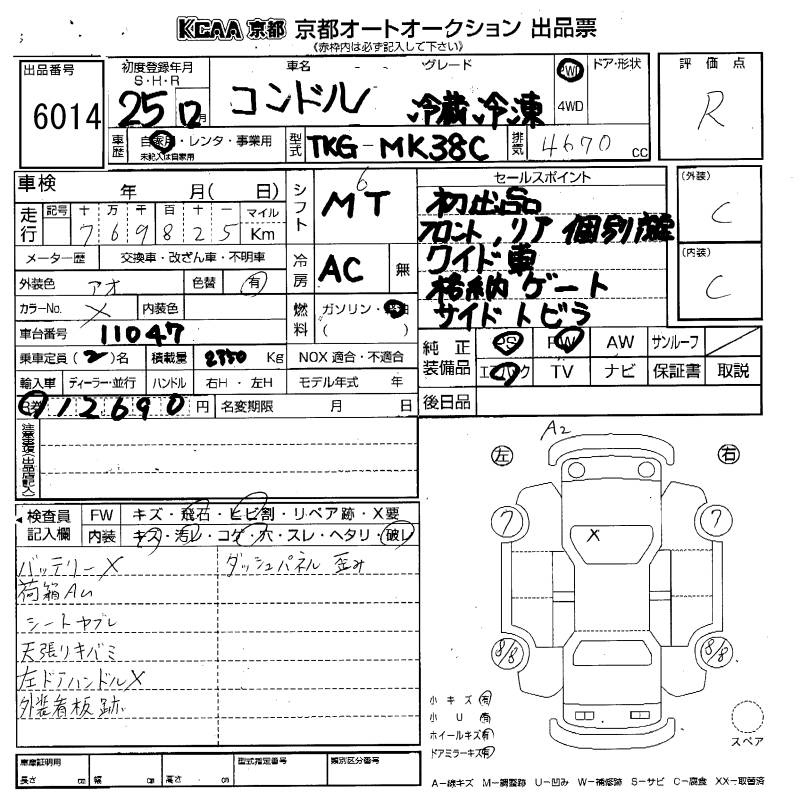 KCAA 京都 京都オートオークション 出品票
《赤枠内は必ず記入して下さい》
出品番号 6014
初度登録年月 S・H・R 25 12 月
車名 コンドル
グレード 冷蔵冷凍
2WD 4WD
ドア・形状
評価点 R
車歴 自家用・レンタ・事業用
未記入は自家用
型式 TKG-MK38C
排気 4670 cc
車検 年 月( 日)
シフト 6 MT
セールスポイント
初出品
フロント、リア 個別懸
ワイド車
格納ゲート
サイドトビラ
(外装) C
(内装) C
走行 記号 十万千百十一 マイル Km
769825
メーター歴 交換車・改ざん車・不明車
冷房 AC 無
外装色 アオ 色替 有
カラーNo. X 内装色
燃料 ガソリン・軽油 ( )
車台番号 11047
乗車定員 (2)名 積載量 2350 Kg NOX 適合・不適合
輸入車 ディーラー・並行 ハンドル 右H・左H モデル年式 年
R券 12690 円 名変期限 月 日
純正装備品 PS PW AW サンルーフ
エアバック TV ナビ 保証書 取説
後日品
注意事項(出品店記入)
検査員記入欄 FW キズ・飛石・ヒビ割・リペア跡・X要
内装 キズ・汚レ・コゲ・穴・スレ・ヘタリ・破レ
バッテリーX ダッシュパネル 歪み
荷箱AU
シートヤブレ
天張りキバミ
左ドアハンドルX
外装看板跡
A2
左 右
7 7
X
8/8 8/8
小キズ 有
小U 有
ホイールキズ 有
ドアミラーキズ 有
スペア
車庫証明用 長さ cm 幅 cm 高さ cm
型式指定番号 類別区分番号
A-線キズ M-調整跡 U-凹み W-補修跡 S-サビ C-腐食 XX-取替済